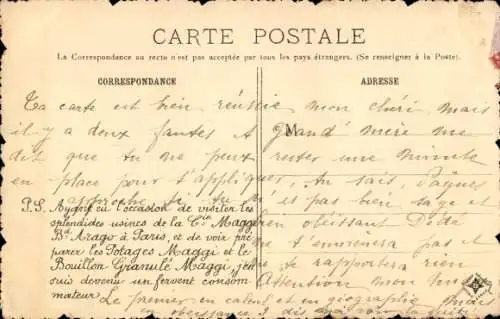 CARTE POSTALE
La Correspondance au recto n'est pas acceptée par tous les pays étrangers. (Se renseigner à la Poste).
CORRESPONDANCE
ADRESSE
Ta carte est bien réussie mon chéri mais
il y a deux fautes et Grand' mère me
M
dit que tu ne peux rester une minute
en place pour s'appliquer, Tu sais, Pâques
approche si tu n'es pas bien sage et
bien obéissant Dédé
t'emmènera pas et
te rapportera rien
Attention mon
P.S. Ayant eu l'occasion de visiter les
splendides usines de la Cie Maggi
Bd Arago à Paris, et de voir pré-
parer les Potages Maggi et le
Bouillon Granulé Maggi, j'en
suis devenu un fervent consom-
mateur.
Le premier en calcul et en géographie mais
en obéissance